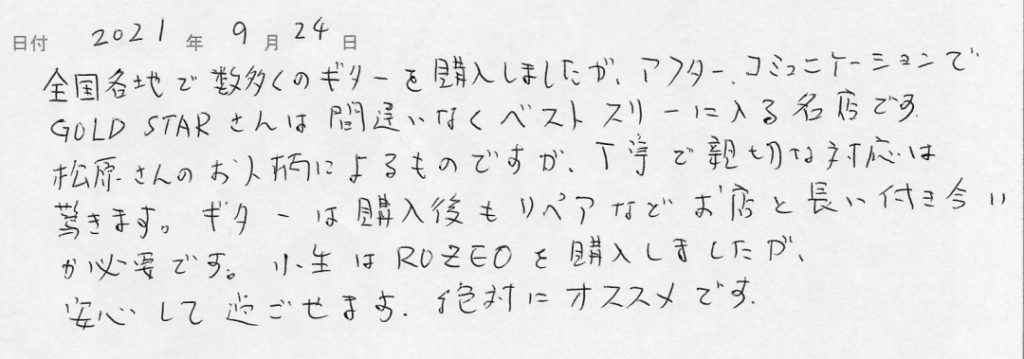 日付 2021 年 9 月 24 日
全国各地で数多くのギターを購入しましたが、アフター、コミュニケーションで
GOLD STARさんは間違いなくベストスリーに入る名店です.
松原さんのお人柄によるものですが、丁寧で親切な対応は
驚きます。ギターは購入後もリペアなどお店と長い付き合い
が必要です。小生はROZEOを購入しましたが、
安心して過ごせます. 絶対にオススメです.